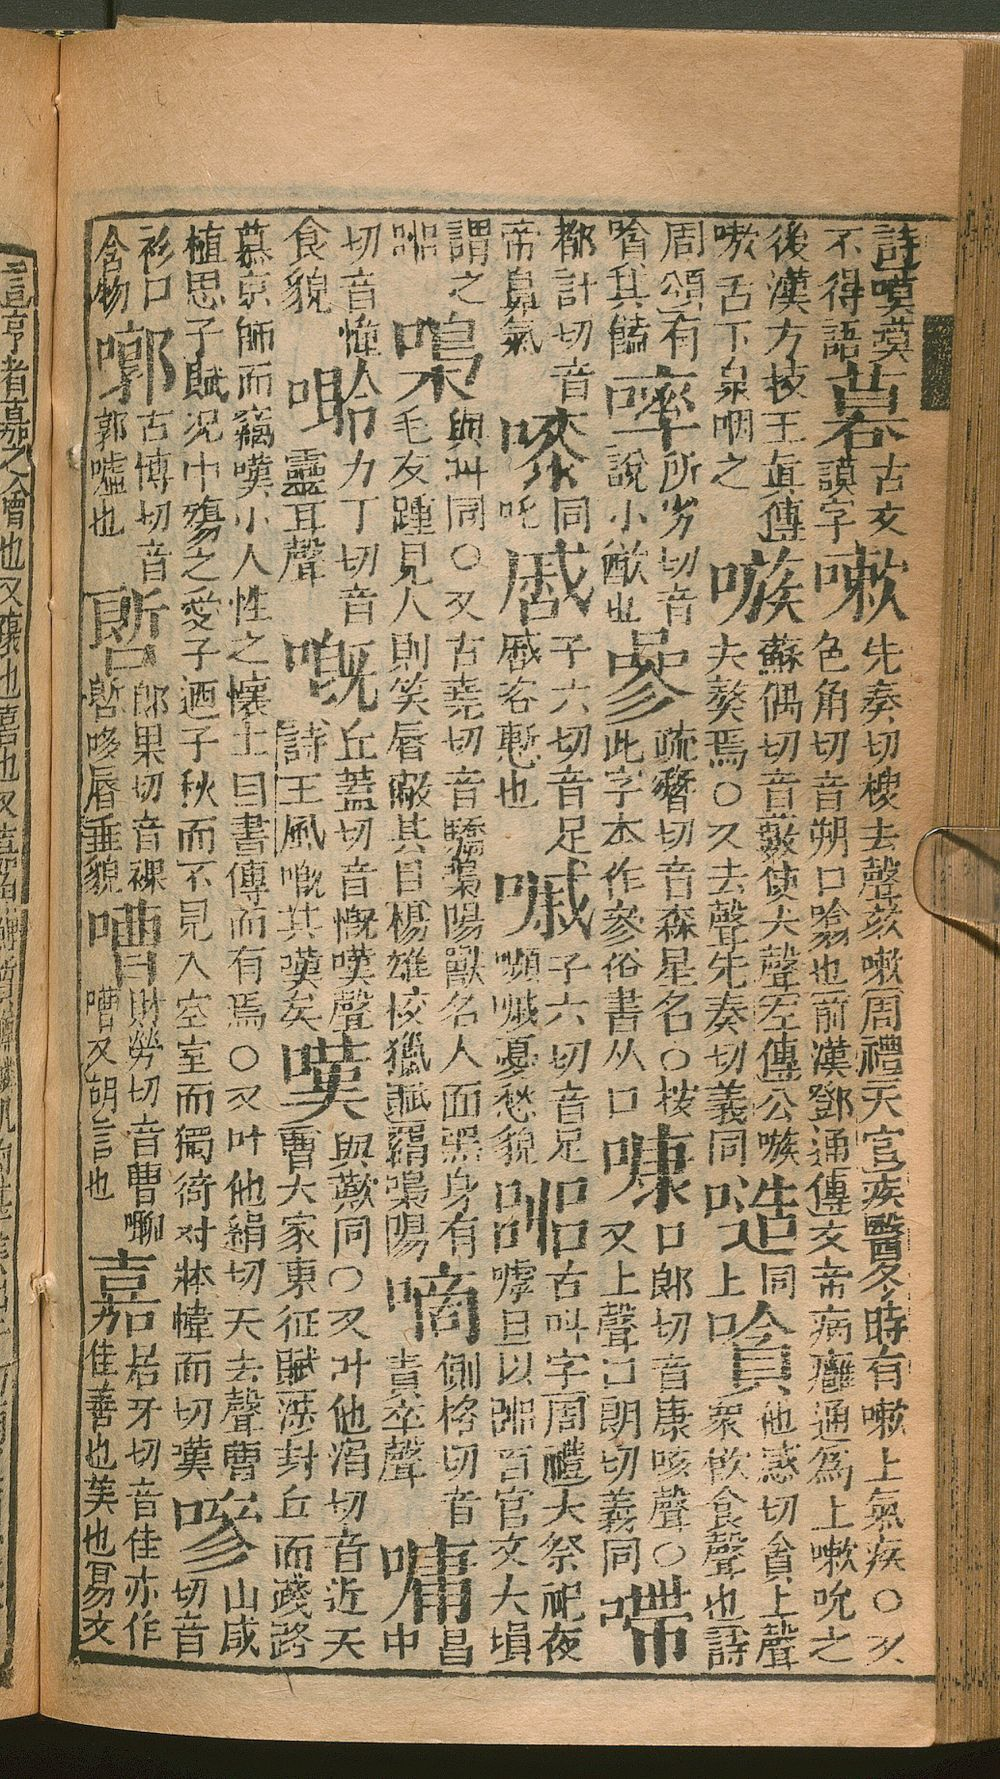 詩嘆莫不得語 暮 古文謨字 嗽 先奏切樓去聲欬嗽周禮天官疾醫冬時有嗽上氣疾○又色角切音朔口噏也前漢鄧通傳文帝病癰通爲上嗽吮之
後漢方技王眞傳嗽舌下泉咽之 嗾 蘇偶切音藪使犬聲左傳公嗾夫獒焉○又去聲先奏切義同 同上 嗿 他感切貪上聲衆飮食聲也詩
周頌有嗿其饁 所劣切音說小歠也 嘇 疏簪切音森星名○按此字本作參俗書从口 口郎切音康咳聲○又上聲口朗切義同
都計切音帝鼻氣 同吒 子六切音足慼咨慙也 嘁 子六切音足嚬嘁憂愁貌 嘂 古叫字周禮大祭祀夜嘑旦以嘂百官又大塤
謂之嘂 嘄 與叫同○又古堯切音驍嘄陽獸名人面黑身有毛友踵見人則笑脣蔽其目楊雄校獵賦羂嘄陽 嘀 側格切音責卒聲 嘃 昌中
切音慵食貌 力丁切音靈耳聲 嘅 丘蓋切音慨嘆聲詩王風嘅其嘆矣 嘆 與歎同○又叶他涓切音近天曹大家東征賦涉封丘而踐路
慕京師而竊嘆小人性之懷土曰書傳而有焉○又叶他絹切天去聲曹植思子賦況中殤之愛子迺千秋而不見入空室而獨倚对牀幃而切嘆 嘇 山咸切音
衫口含物 古博切音郭噓也 郎果切音裸 脣垂貌 嘈 財勞切音曹嘲嘈又胡言也 嘉 居牙切音佳亦作佳善也美也易文